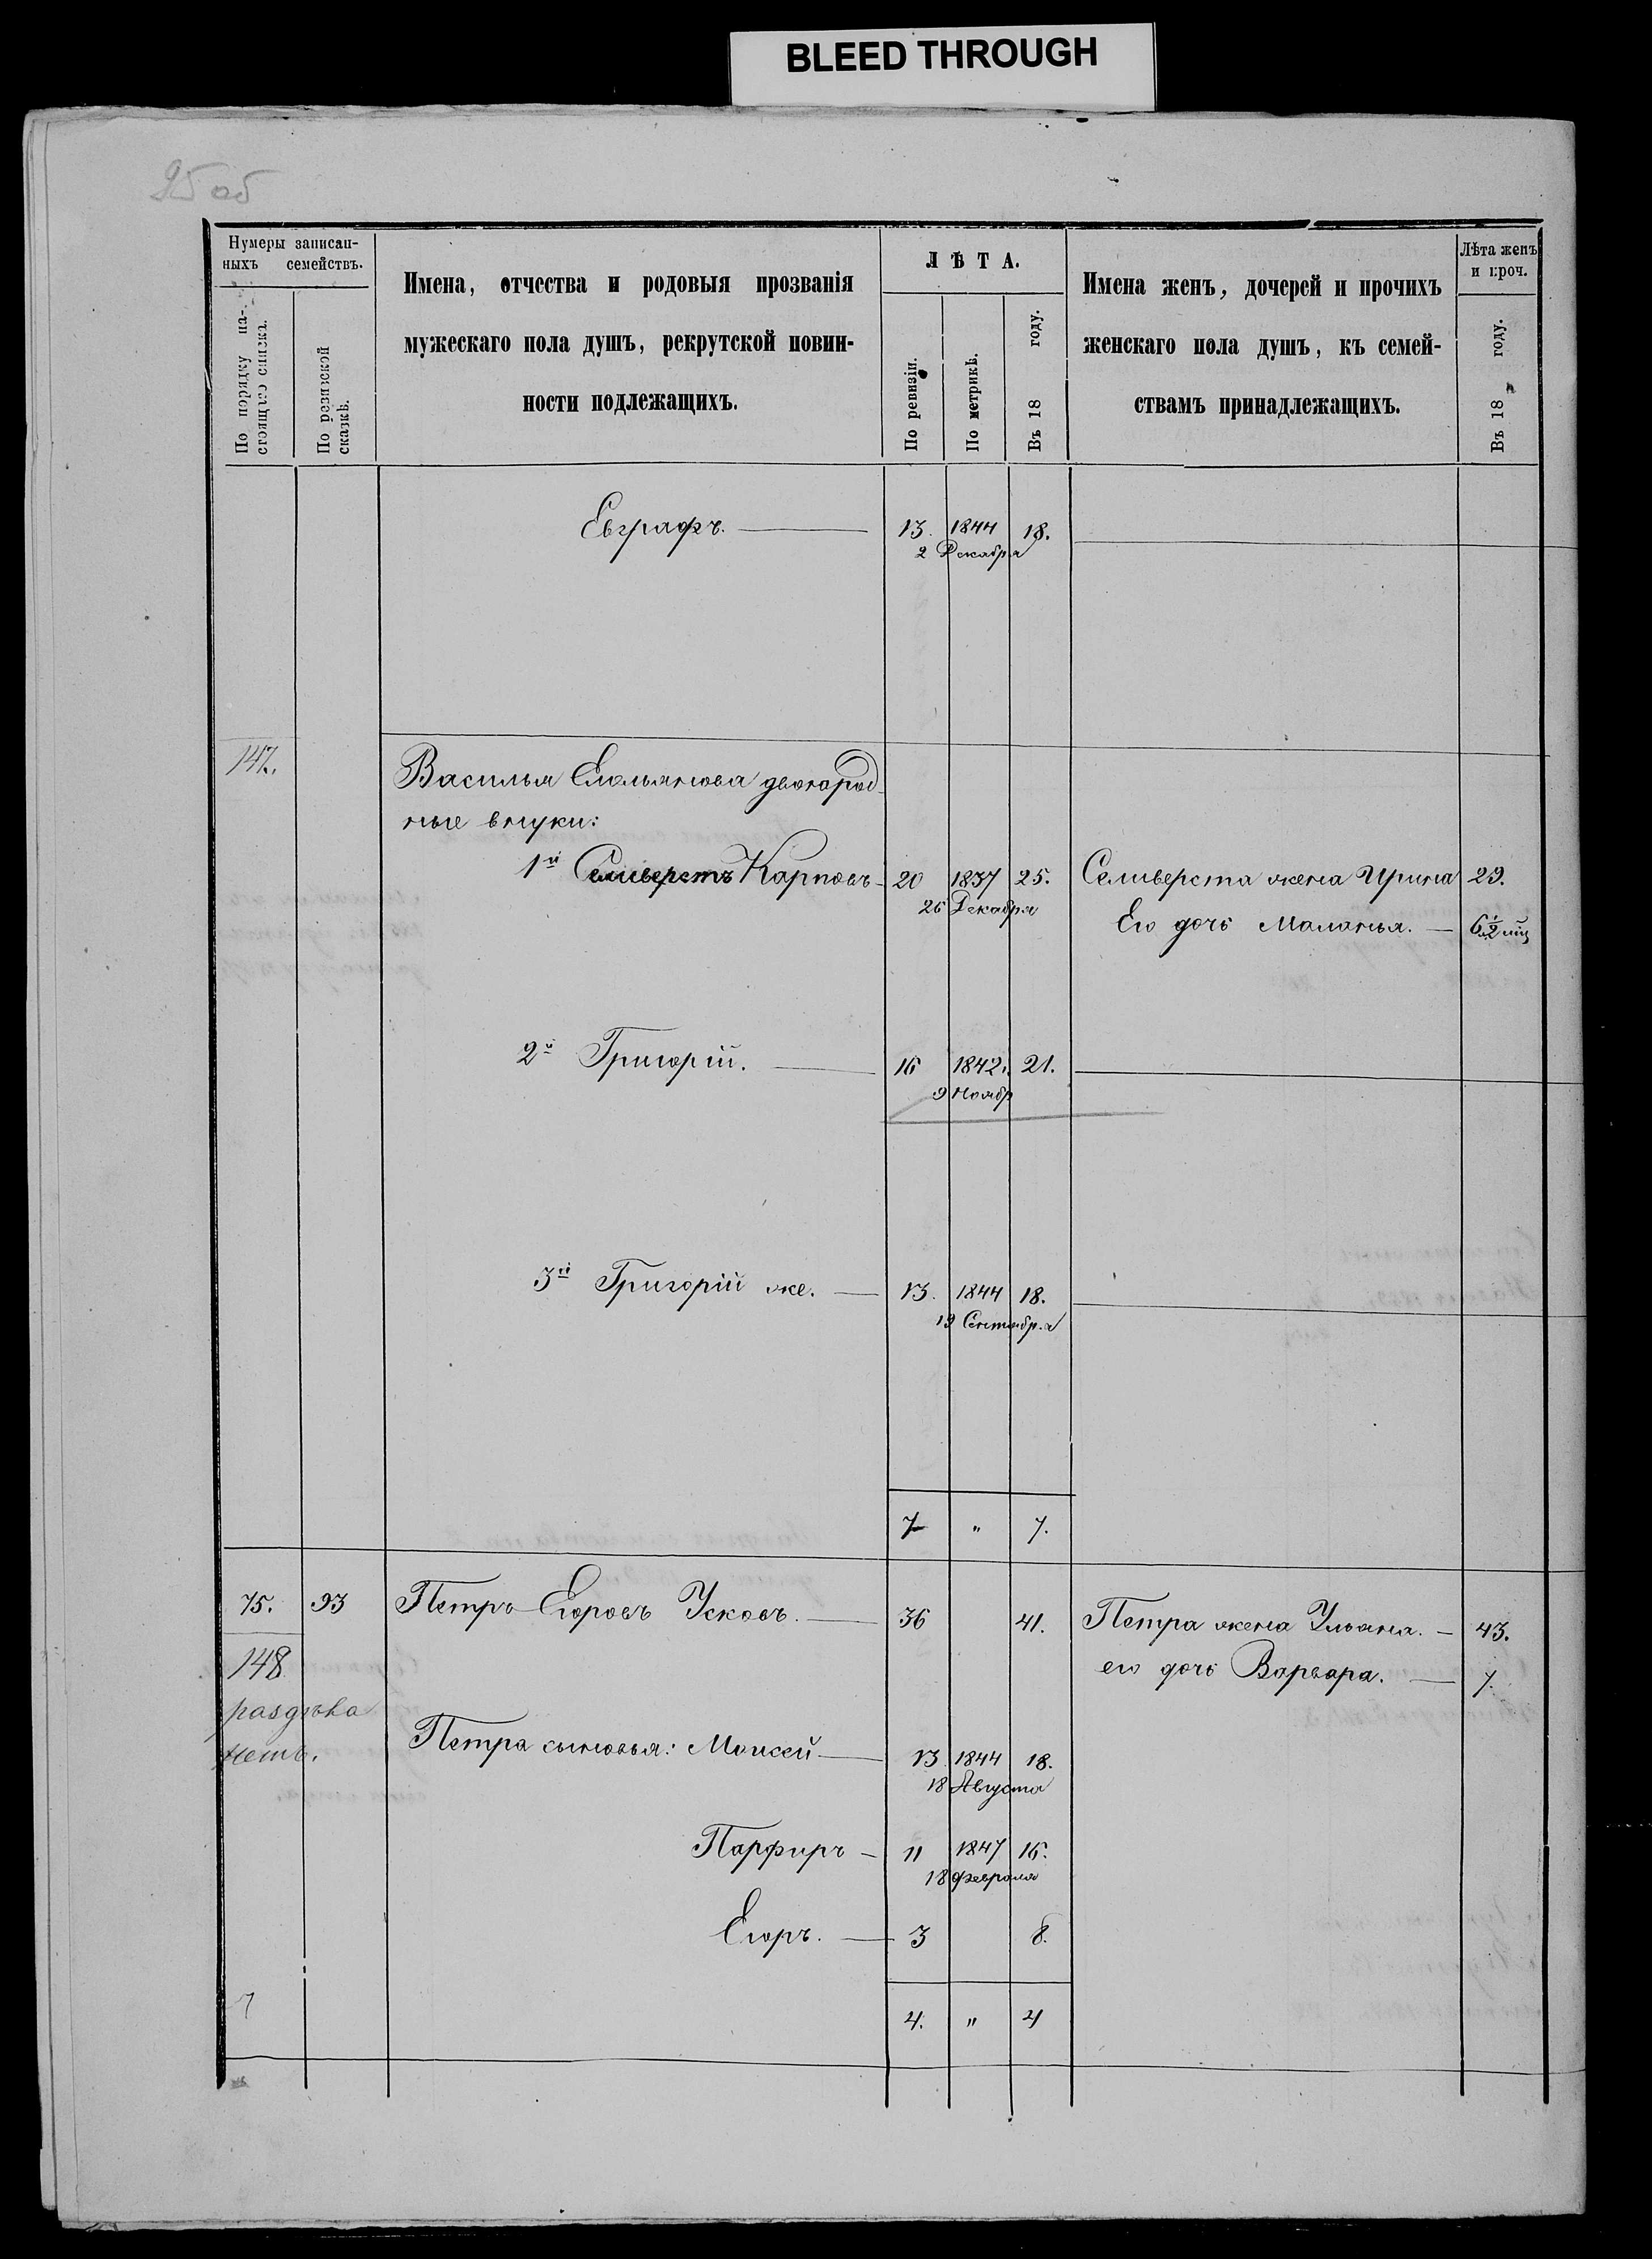 BLEED THROUGH
25 об
Нумеры записан-
ныхъ семействъ.
По порядку на-
стоящаго списка.
По ревизской
сказкѣ.
Имена, отчества и родовыя прозванія
мужескаго пола душъ, рекрутской повин-
ности подлежащихъ.
ЛѢТА.
По ревизіи.
По метрикѣ.
Въ 18 году.
Имена женъ, дочерей и прочихъ
женскаго пола душъ, къ семей-
ствамъ принадлежащихъ.
Лѣта женъ
и проч.
Въ 18 году.
Евграфъ. 13. 1844 18.
2 Декабря
147.
Василья Емельянова двоюрод-
ные внуки:
1й Селиверстъ Карповъ 20 1837 25. Селиверста жена Ирина 29.
26 Декабря
Его дочь Маланья. 6 1/2 мц
2й Григорій. 16 1842. 21.
9 Ноябр
3й Григорій же. 13. 1844 18.
19 Сентября
7 " 7.
75. 93 Петръ Егоровъ Усковъ. 36 41. Петра жена Ульяна. 43.
148 его дочь Варвара. 7.
раздѣла
нетъ.
Петра сыновья: Моисей 13 1844 18.
18 Августа
Парфиръ 11 1847 16.
18 Февраля
Егоръ. 3 8.
4. " 4